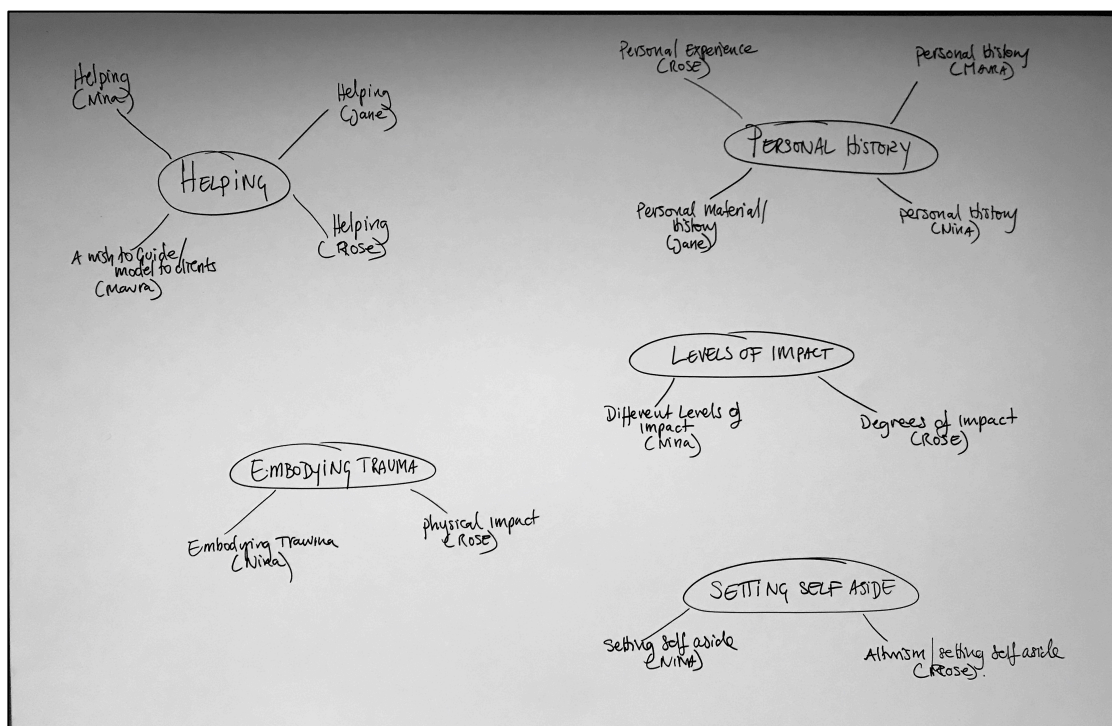 Helping
(Nina)
Helping
(Jane)
HELPING
Helping
(Rose)
A wish to Guide/
model to clients
(Maura)
Personal Experience
(ROSE)
personal History
(MAURA)
PERSONAL HISTORY
Personal Material/
History
(Jane)
personal History
(NINA)
LEVELS OF IMPACT
Different Levels of
Impact
(Nina)
Degrees of Impact
(ROSE)
EMBODYING TRAUMA
Embodying Trauma
(Nina)
physical Impact
(ROSE)
SETTING SELF ASIDE
setting self aside
(NINA)
Altruism/setting self aside
(ROSE).